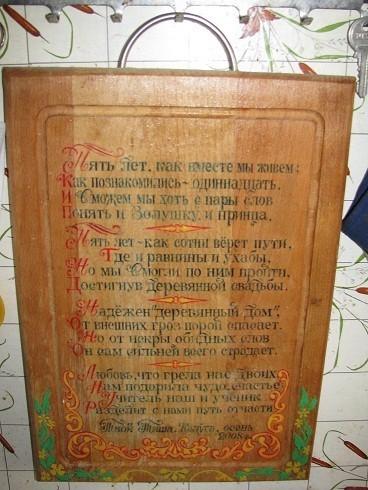 Пять лет, как вместе мы живем;
Как познакомились - одиннадцать.
И сможем мы хоть с пары слов
Понять и Золушку, и принца.
Пять лет - как сотни вёрст пути,
Где и равнины и ухабы,
Но мы смогли по ним пройти,
Достигнув деревянной свадьбы.
Надёжен "деревянный дом",
От внешних гроз порой спасает.
Но от искры обидных слов
Он сам сильней всего страдает.
Любовь, что грела нас двоих,
Нам подарила чудо, счастье
Учитель наш и ученик -
Разделит с нами путь отчасти.
осень
2008г.